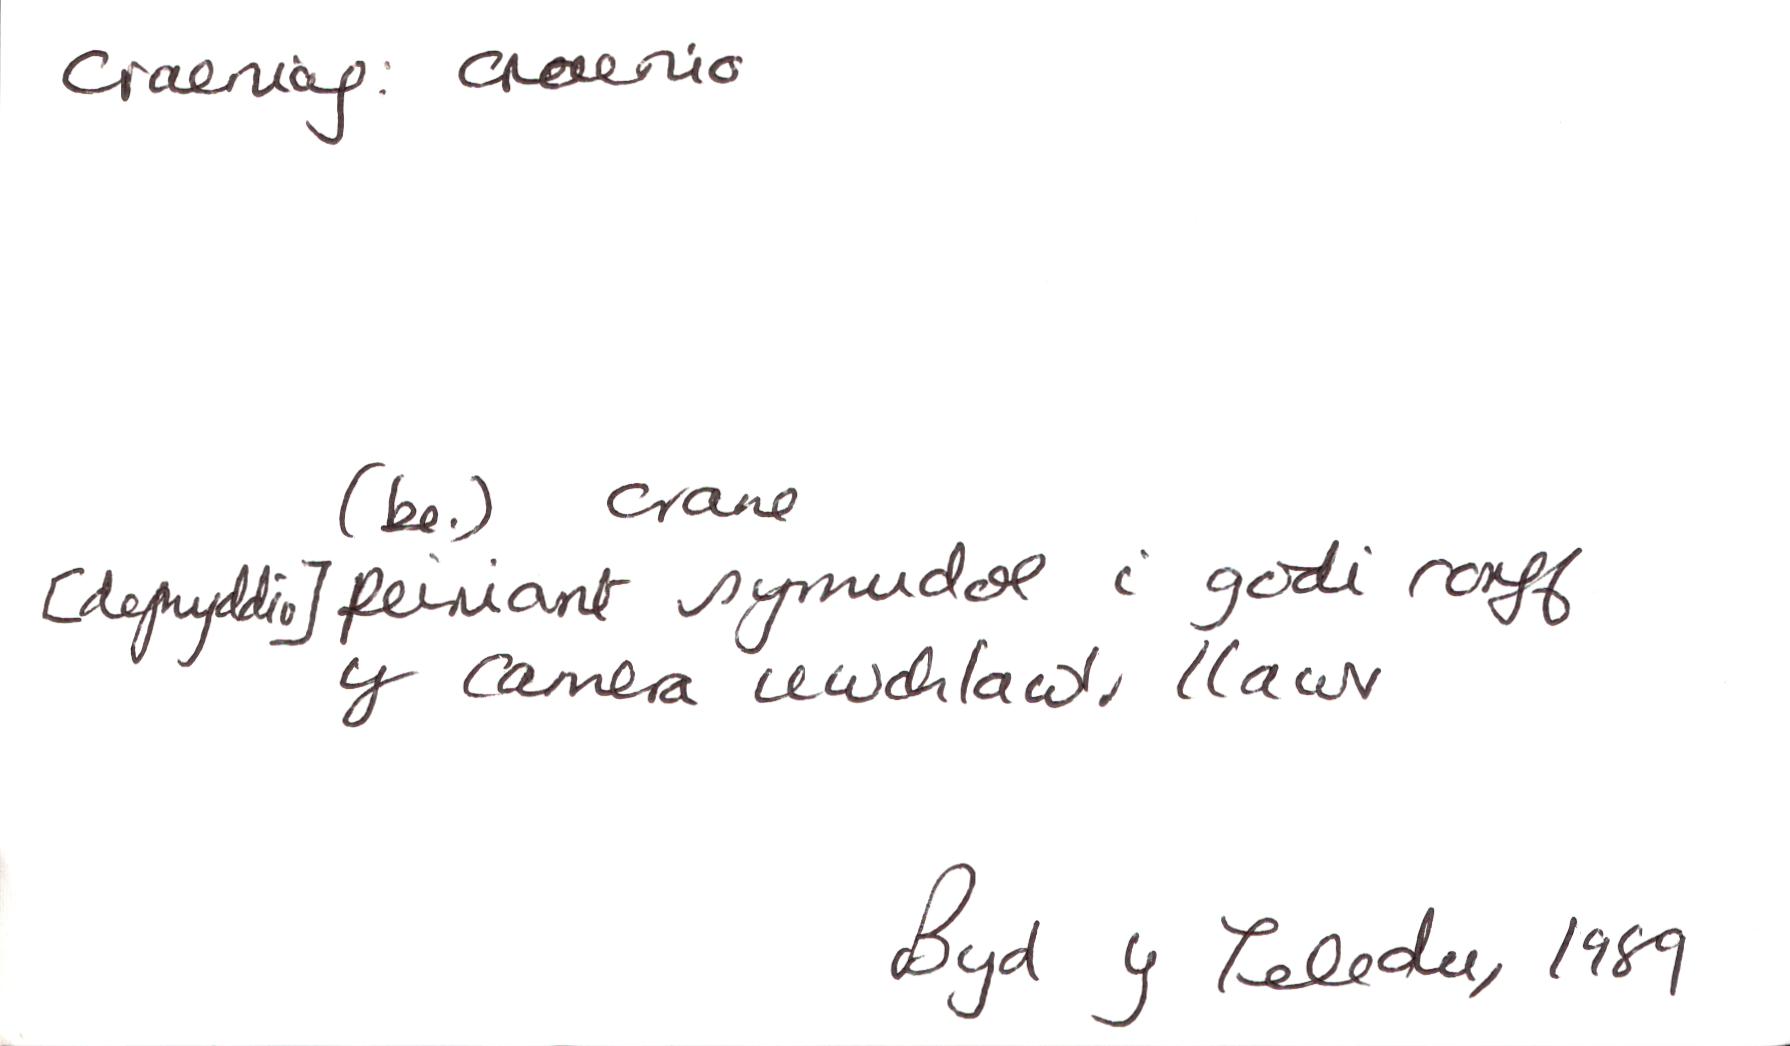 craeniaf: craenio
(be.) crane
[defnyddio] peiriant symudol i godi corff
y camera uwchlaw'r llawr
Byd y Teledu, 1989